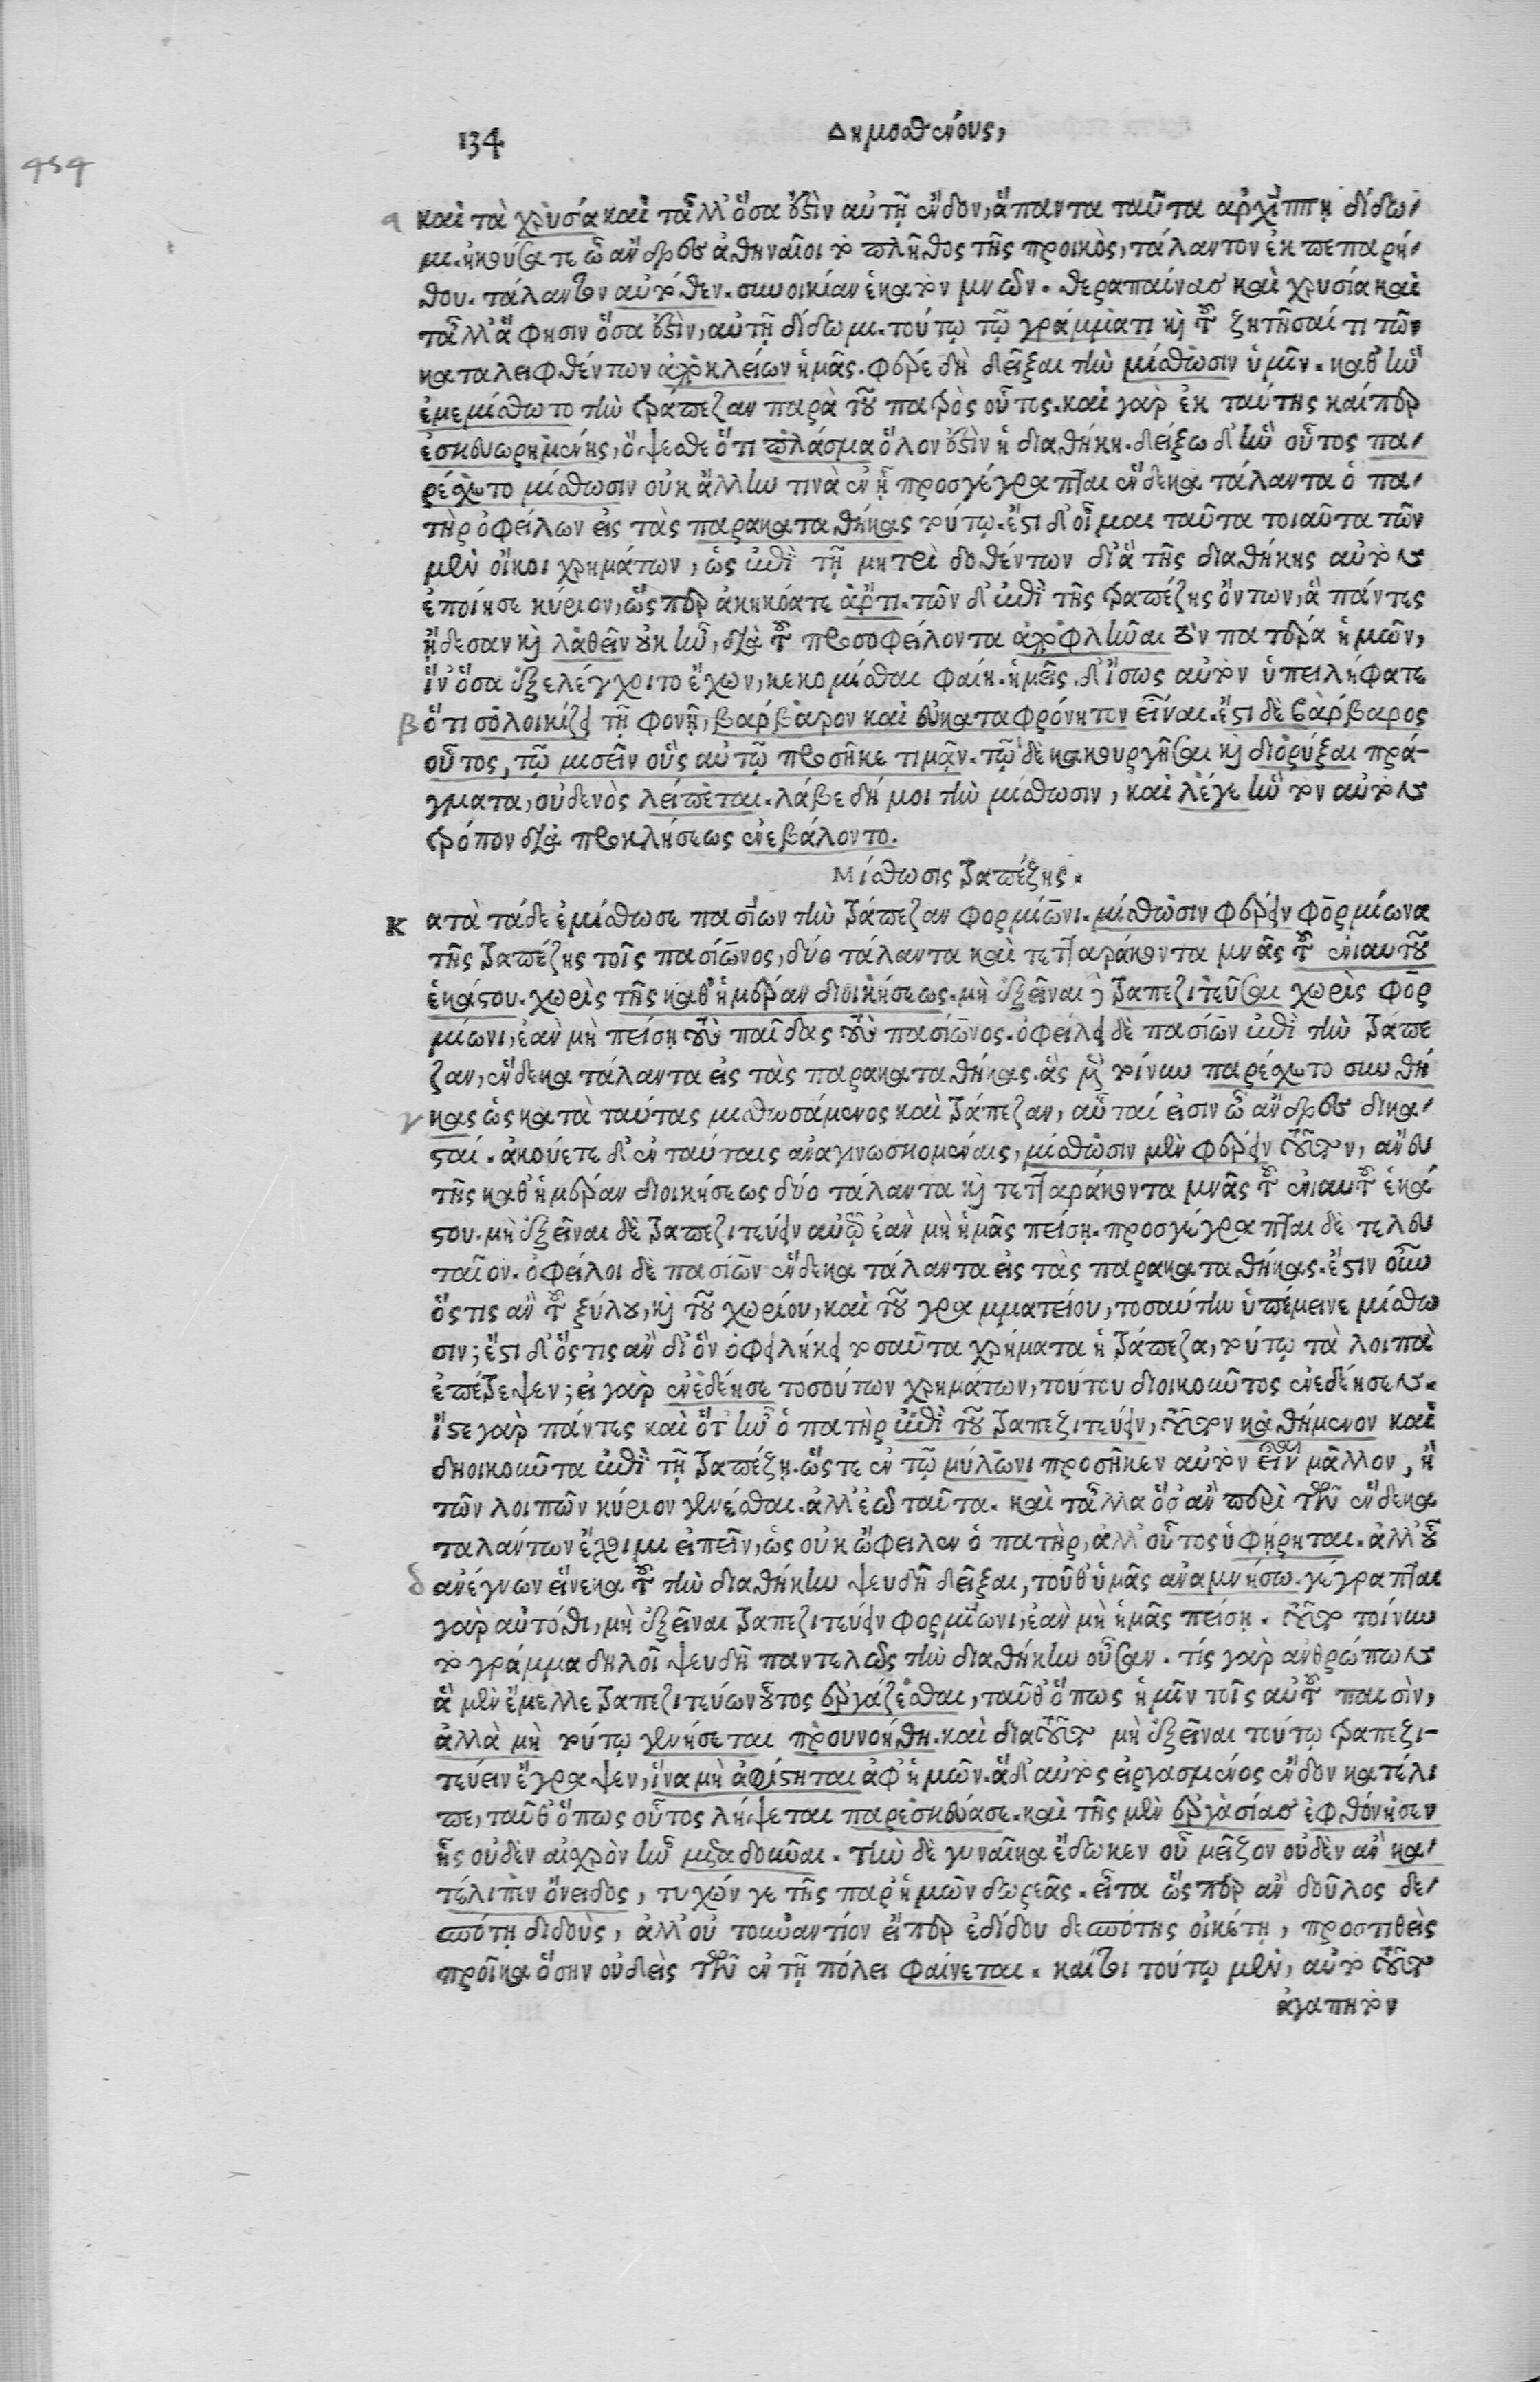 134
Δημοσθένους,
454
α καὶ τὰ χρυσία καὶ τἆλλ' ὅσα ἐστὶν αὐτῇ ἔνδον, ἅπαντα ταῦτα ἀρχίππῃ δίδω-
μι. ἠκούσατε ὦ ἄνδρες ἀθηναῖοι τὸ πλῆθος τῆς προικὸς, τάλαντον ἐκ πεπαρή-
θου. τάλαντον αὐτόθεν. συνοικίαν ἑκατὸν μνῶν. θεραπαίνας καὶ χρυσία καὶ
τἆλλ' ἅ φησιν ὅσα ἐστὶν, αὐτῇ δίδωμι. τούτῳ τῷ γράμματι καὶ τοῦ ζητῆσαί τι τῶν
καταλειφθέντων ἀποκλείων ἡμᾶς. φέρε δὴ δεῖξαι τὴν μίσθωσιν ὑμῖν. καθ' ἣν
ἐμεμίσθωτο τὴν τράπεζαν παρὰ τοῦ πατρὸς οὗτος. καὶ γὰρ ἐκ ταύτης καίπερ
ἐσκευωρημένης, ὄψεσθε ὅτι πλάσμα ὅλον ἐστὶν ἡ διαθήκη. δείξω δ' ἣν οὗτος πα-
ρέσχετο μίσθωσιν οὐκ ἄλλην τινὰ ἐν ᾗ προσγέγραπται ἕνδεκα τάλαντα ὁ πα-
τὴρ ὀφείλων εἰς τὰς παρακαταθήκας τούτῳ. ἔστι δ' οἶμαι ταῦτα τοιαῦτα τῶν
μὲν οἴκοι χρημάτων, ὡς ἐπὶ τῇ μητρὶ δοθέντων διὰ τῆς διαθήκης αὑτὸν
ἐποίησε κύριον, ὥςπερ ἀκηκόατε ἄρτι. τῶν δ' ἐπὶ τῆς τραπέζης ὄντων, ἃ πάντες
ᾔδεσαν καὶ λαθεῖν οὐκ ἦν, διὰ τοῦ προσοφείλοντα ἀποφῆναι τὸν πατέρα ἡμῶν,
ἵν' ὅσα ἐξελέγχοιτο ἔχων, κεκομίσθαι φαίη. ἡμεῖς δ' ἴσως αὐτὸν ὑπειλήφατε
β ὅτι σολοικίζει τῇ φονῇ, βαρβάρον καὶ εὐκαταφρόνητον εἶναι. ἔστι δὲ βάρβαρος
οὗτος, τῷ μισεῖν οὓς αὐτῷ προσῆκε τιμᾷν. τῷ δὲ κακουργῆσαι καὶ διορύξαι πρά-
γματα, οὐδενὸς λείπεται. λάβε δή μοι τὴν μίσθωσιν, καὶ λέγε ἣν τὸν αὐτὸν
τρόπον διὰ προκλήσεως ἐνεβάλοντο.
Μίσθωσις τραπέζης.
Κατὰ τάδε ἐμίσθωσε πασίων τὴν τράπεζαν φορμίωνι. μίσθωσιν φέρειν φορμίωνα
τῆς τραπέζης τοῖς πασίωνος, δύο τάλαντα καὶ τετταράκοντα μνᾶς τοῦ ἐνιαυτοῦ
ἑκάστου. χωρὶς τῆς καθ' ἡμέραν διοικήσεως. μὴ ἐξεῖναι δὲ τραπεζιτεῦσαι χωρὶς φορ
μίωνι, ἐὰν μὴ πείσῃ τοὺς παῖδας τοὺς πασίωνος. ὀφείλει δὲ πασίων ἐπὶ τὴν τράπε
ζαν, ἕνδεκα τάλαντα εἰς τὰς παρακαταθήκας. ἃς μὲν τοίνυν παρέσχετο συνθή
γ κας ὡς κατὰ ταύτας μισθωσάμενος καὶ τράπεζαν, αὗταί εἰσιν ὦ ἄνδρες δικα-
σταί. ἀκούετε δ' ἐν ταύταις ἀναγινωσκομέναις, μίσθωσιν μὲν φέρειν τοῦτον, ἄνευ
τῆς καθ' ἡμέραν διοικήσεως δύο τάλαντα καὶ τετταράκοντα μνᾶς τοῦ ἐνιαυτοῦ ἑκά
στου. μὴ ἐξεῖναι δὲ τραπεζιτεύειν αὐτῷ ἐὰν μὴ ἡμᾶς πείσῃ. προσγέγραπται δὲ τελευ
ταῖον. ὀφείλοι δὲ πασίων ἕνδεκα τάλαντα εἰς τὰς παρακαταθήκας. ἔστιν οὖν
ὅςτις ἂν τοῦ ξύλου, καὶ τοῦ χωρίου, καὶ τοῦ γραμματείου, τοσαύτην ὑπέμεινε μίσθω
σιν; ἔστι δ' ὅςτις ἂν δι' ὃν ὀφειλήκει τοσαῦτα χρήματα ἡ τράπεζα, τούτῳ τὰ λοιπὰ
ἐπέτρεψεν; εἰ γὰρ ἐνεδέησε τοσούτων χρημάτων, τούτου διοικοῦντος ἐνεδέησεν.
ἴστε γὰρ πάντες καὶ ὅτ' ἦν ὁ πατὴρ ἐπὶ τοῦ τραπεζιτεύειν, τοῦτον καθήμενον καὶ
διοικοῦντα ἐπὶ τῇ τραπέζῃ. ὥςτε ἐν τῷ μύλωνι προσῆκεν αὐτὸν εἶναι μᾶλλον, ἢ
τῶν λοιπῶν κύριον γενέσθαι. ἀλλ' ἐῶ ταῦτα. καὶ τἆλλα ὅσ' ἂν περὶ τῶν ἕνδεκα
ταλάντων ἔχοιμι εἰπεῖν, ὡς οὐκ ὤφειλεν ὁ πατὴρ, ἀλλ' οὗτος ὑφῄρηται. ἀλλ' οὗ
δ ἀνέγνων εἵνεκα τοῦ τὴν διαθήκην ψευδῆ δεῖξαι, τοῦθ' ὑμᾶς ἀναμνήσω. γέγραπται
γὰρ αὐτόθι, μὴ ἐξεῖναι τραπεζιτεύειν φορμίωνι, ἐὰν μὴ ἡμᾶς πείσῃ. τοῦτο τοίνυν
τὸ γράμμα δηλοῖ ψευδῆ παντελῶς τὴν διαθήκην οὖσαν. τίς γὰρ ἀνθρώπων
ἃ μὲν ἔμελλε τραπεζιτεύων οὗτος ἐργάζεσθαι, ταῦθ' ὅπως ἡμῖν τοῖς αὑτοῦ παισὶν,
ἀλλὰ μὴ τούτῳ γενήσεται προυνοήθη. καὶ διατοῦτο μὴ ἐξεῖναι τούτῳ τραπεζι-
τεύειν ἔγραψεν, ἵνα μὴ ἀφίστηται ἀφ' ἡμῶν. ἃ δ' αὐτὸς εἰργασμένος ἔνδον κατέλι
πε, ταῦθ' ὅπως οὗτος λήψεται παρεσκεύασε. καὶ τῆς μὲν ἐργασίας ἐφθόνησεν
ἧς οὐδὲν αἰσχρὸν ἦν μεταδοῦναι. τὴν δὲ γυναῖκα ἔδωκεν οὗ μεῖζον οὐδὲν ἂν κα-
τέλιπεν ὄνειδος, τυχών γε τῆς παρ' ἡμῶν δωρεᾶς. εἶτα ὥςπερ ἂν δοῦλος δε-
σπότῃ διδοὺς, ἀλλ' οὐ τοὐναντίον εἴπερ ἐδίδου δεσπότης οἰκέτῃ, προστιθεὶς
προῖκα ὅσην οὐδεὶς τῶν ἐν τῇ πόλει φαίνεται. καίτοι τούτῳ μὲν, αὐτὸ τοῦτο
ἀγαπητὸν